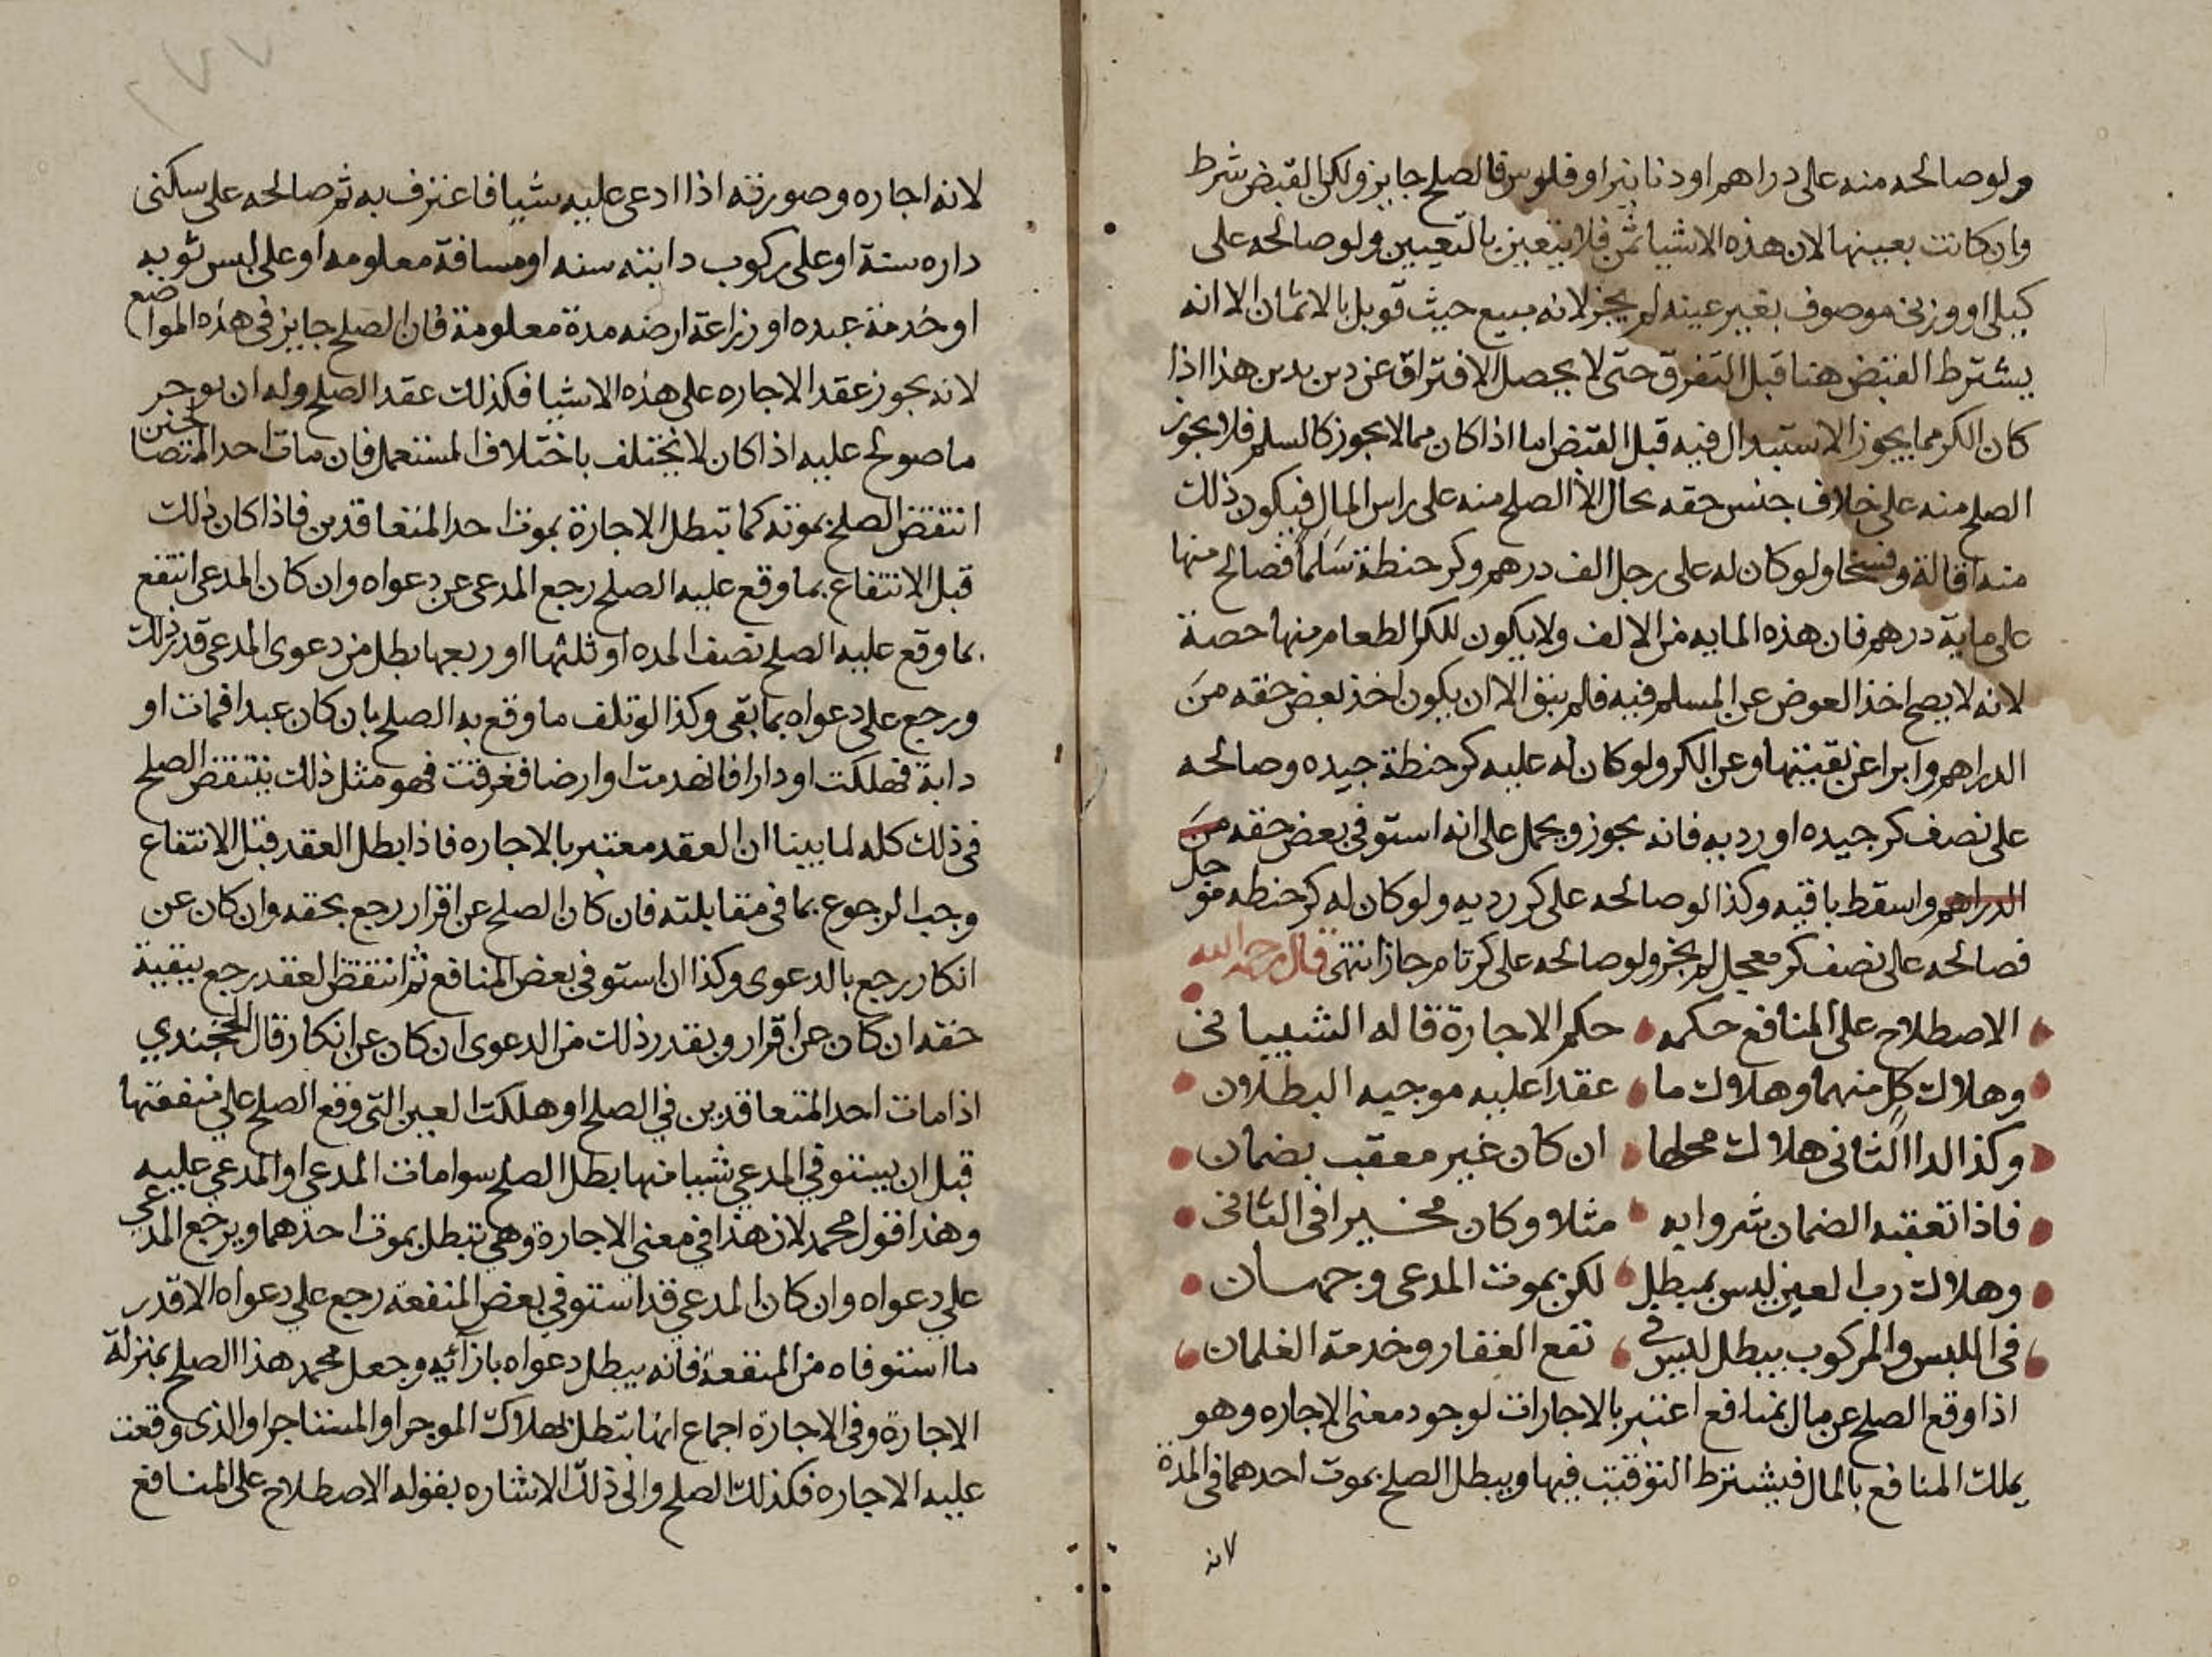 ولو صالحه منه على دراهم او دنانير او فلوس فالصلح جايز ولكن القبض شرط
وان كانت بعينها لان هذه الاشيا ثمن فلا يتعين بالتعيين ولو صالحه على
كيلى او وزنى موصوف بغير عينه لم يجز لانه مبيع حيث قوبل بالاثمان الا انه
يشترط القبض هنا قبل التفرق حتى لا يحصل الافتراق عن دين بدين هذا اذا
كان الكر مما يجوز الاستبدال فيه قبل القبض اما اذا كان مما لا يجوز كالسلم فلا يجوز
الصلح منه على خلاف جنس حقه بحال الا الصلح منه على راس المال فيكون ذلك
منه اقالة وفسخا ولو كان له على رجل الف درهم وكر حنطة سلما فصالح منها
على ماية درهم فان هذه المايه من الالف ولا يكون للكر الطعام منها حصة
لانه لا يصح اخذ العوض عن المسلم فيه فلم يبق الا ان يكون اخذ بعض حقه من
الدراهم وابرا عن بقيتها وعن الكر ولو كان له عليه كر حنطة جيده وصالحه
على نصف كر جيده او رديه فانه يجوز ويحمل على انه استوفى بعض حقه من
الدراهم واسقط باقيه وكذا لو صالحه على كر رديه ولو كان له كر حنطه موجل
فصالحه على نصف كر معجل لم يجز ولو صالحه على كر تام جاز انتهى قال رحمه الله
الاصطلاح على المنافع حكمه حكم الاجارة قاله الشيبانى
وهلاك كل منهما وهلاك ما عقدا عليه موجبه البطلان
وكذا لدا الثانى هلاك محلها ان كان غير معقب بضمان
فاذا تعقبه الضمان شروا به مثلا وكان مخيرا فى الثانى
وهلاك رب العين ليس بمبطل لكن بموت المدعى وجهان
فى اللبس والمركوب يبطل ليس فى نفع العقار وخدمة الغلمان
اذا وقع الصلح عن مال بمنافع اعتبر بالاجارات لوجود معنى الاجاره وهو
يملك المنافع بالمال فيشترط التوقيت فيها ويبطل الصلح بموت احدهما فى المدة
لانه
لانه اجاره وصورته اذا ادعى عليه شيا فاعترف به ثم صالحه على سكنى
داره سنة او على ركوب دابته سنه او مسافة معلومه او على لبس ثوبه
او خدمة عبده او زراعة ارضه مدة معلومة فان الصلح جايز فى هذه المواضع
لانه يجوز عقد الاجاره على هذه الاشيا فكذلك عقد الصلح وله ان يوجر
ما صولح عليه اذا كان لا يختلف باختلاف المستعمل فان مات احد المتصالحين
انتقض الصلح بموته كما تبطل الاجارة بموت احد المتعاقدين فاذا كان ذلك
قبل الانتفاع بما وقع عليه الصلح رجع المدعى عن دعواه وان كان المدعى انتفع
بما وقع عليه الصلح نصف المده او ثلثها او ربعها بطل من دعوى المدعى قدر ذلك
ورجع على دعواه بما بقى وكذا لو تلف ما وقع به الصلح بان كان عبدا فمات او
دابة فهلكت او دارا فانهدمت او ارضا فغرقت فهو مثل ذلك ينتقض الصلح
فى ذلك كله لما بينا ان العقد معتبر بالاجاره فاذا بطل العقد قبل الانتفاع
وجب الرجوع بما فى مقابلته فان كان الصلح عن اقرار رجع بحقه وان كان عن
انكار رجع بالدعوى وكذا ان استوفى بعض المنافع ثم انتقض العقد رجع ببقية
حقه ان كان عن اقرار وبقدر ذلك من الدعوى ان كان عن انكار قال الخجندي
اذا مات احد المتعاقدين في الصلح او هلكت العين التى وقع الصلح علي منفعتها
قبل ان يستوفي المدعي شيا منها بطل الصلح سوا مات المدعي او المدعي عليه
وهذا قول محمد لان هذا في معنى الاجارة وهي تبطل بموت احدهما ويرجع المدعي
علي دعواه وان كان المدعي قد استوفي بعض المنفعة رجع علي دعواه الا قدر
ما استوفاه من المنفعة فانه يبطل دعواه بازائه وجعل محمد هذا الصلح بمنزلة
الاجارة وفى الاجارة اجماع انها تبطل بهلاك الموجر او المستاجر او الذى وقعت
عليه الاجاره فكذلك الصلح والى ذلك الاشاره بقوله الاصطلاح على المنافع